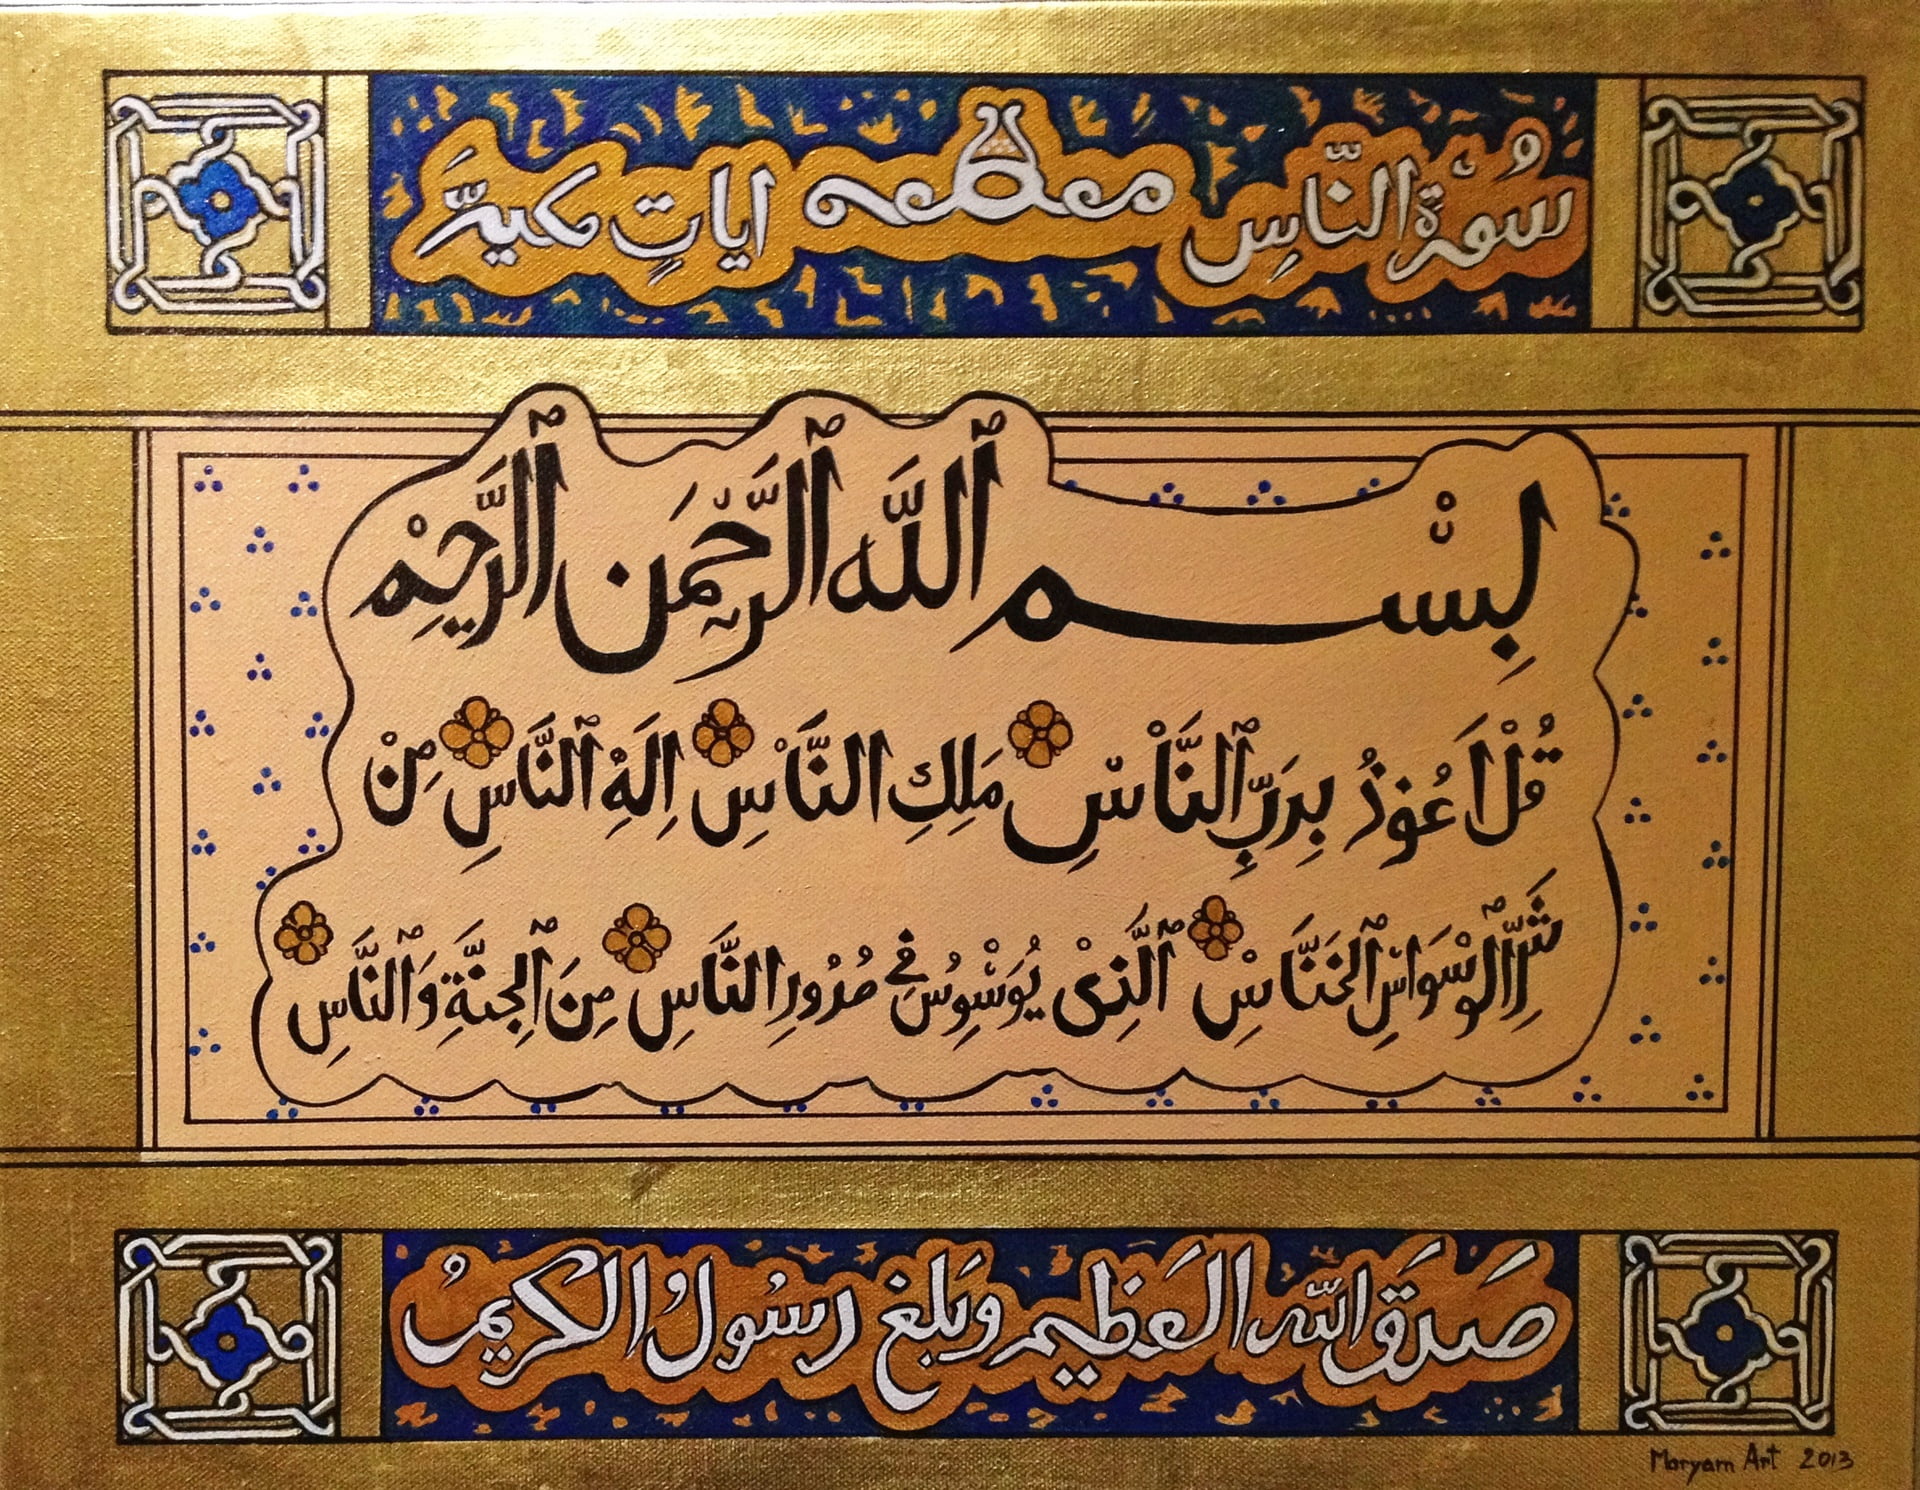 سُورَةُ النَّاسِ ايَاتٍ مكيةَّ
بِسْمِ ٱللَّهِ ٱلرَّحْمَنِ ٱلرَّحِيْمِ
قُلْ اَعُوْذُ بِرَبِّ ٱلنَّاْسِ مَلِكِ النَّاْسِ اِلَهِ ٱلنَّاسِ مِنْ
شَرِّ الْوَسْوَاسِ ٱلخَنَّاسِ ٱلَّذِىْ يُوَسْوِسُ فِي صُدُورِ النَّاسِ مِنَ ٱلجِنَّةِ وَٱلنَّاسِ
صَدَقَ اللّٰه العَظيم وَبلغ رسُولُ الكريمُ
Maryam Art 2013